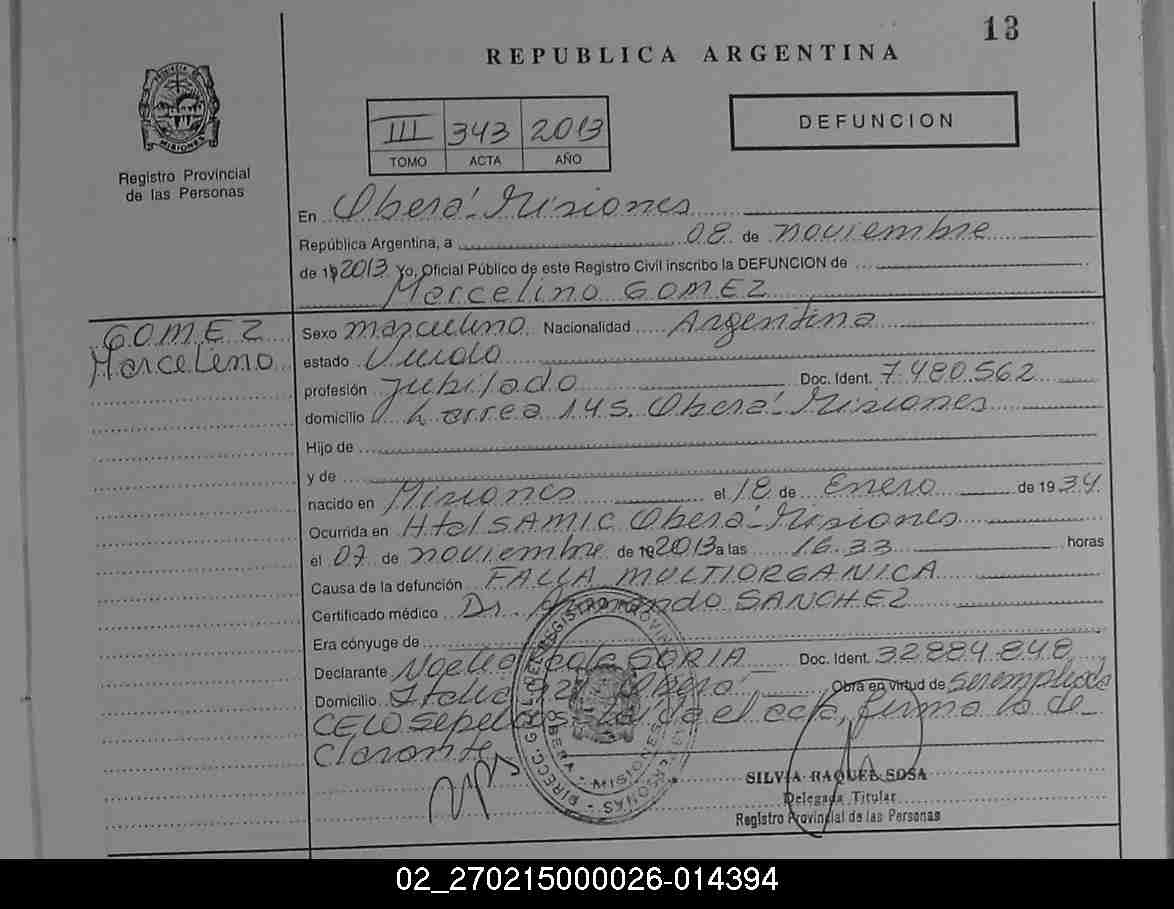 13
REPUBLICA ARGENTINA
PROVINCIA DE
MISIONES
Registro Provincial
de las Personas
III 343 2013
TOMO ACTA AÑO
DEFUNCION
En Oberá-Misiones
República Argentina, a 08 de noviembre
de 19 2013 Yo, Oficial Público de este Registro Civil inscribo la DEFUNCION de
Marcelino GOMEZ
GOMEZ
Marcelino
Sexo masculino Nacionalidad Argentina
estado Viudo
profesión Jubilado Doc. Ident. 7.480.562
domicilio Larrea 145. Oberá-Misiones
Hijo de
y de
nacido en Misiones el 18 de Enero de 1934.
Ocurrida en Htal SAMIC Oberá-Misiones
el 07 de noviembre de 19 2013 a las 16.33 horas
Causa de la defunción FALLA MULTIORGANICA
Certificado médico Dr. Armando SANCHEZ
Era cónyuge de
Declarante Noelia SORIA Doc. Ident. 32.884.848
Domicilio Italia Oberá Obra en virtud de ser empleada
CELO Sepelios. Leída el acta, firma la de-
clarante
MISIONES
SILVIA RAQUEL SOSA
Delegada Titular
Registro Provincial de las Personas
02_270215000026-014394